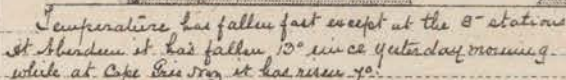 Temperature has fallen fast except at the 8 stations
At Aberdeen it has fallen 13° since yesterday morning
while at Cape Gris Nez it has risen 7°.